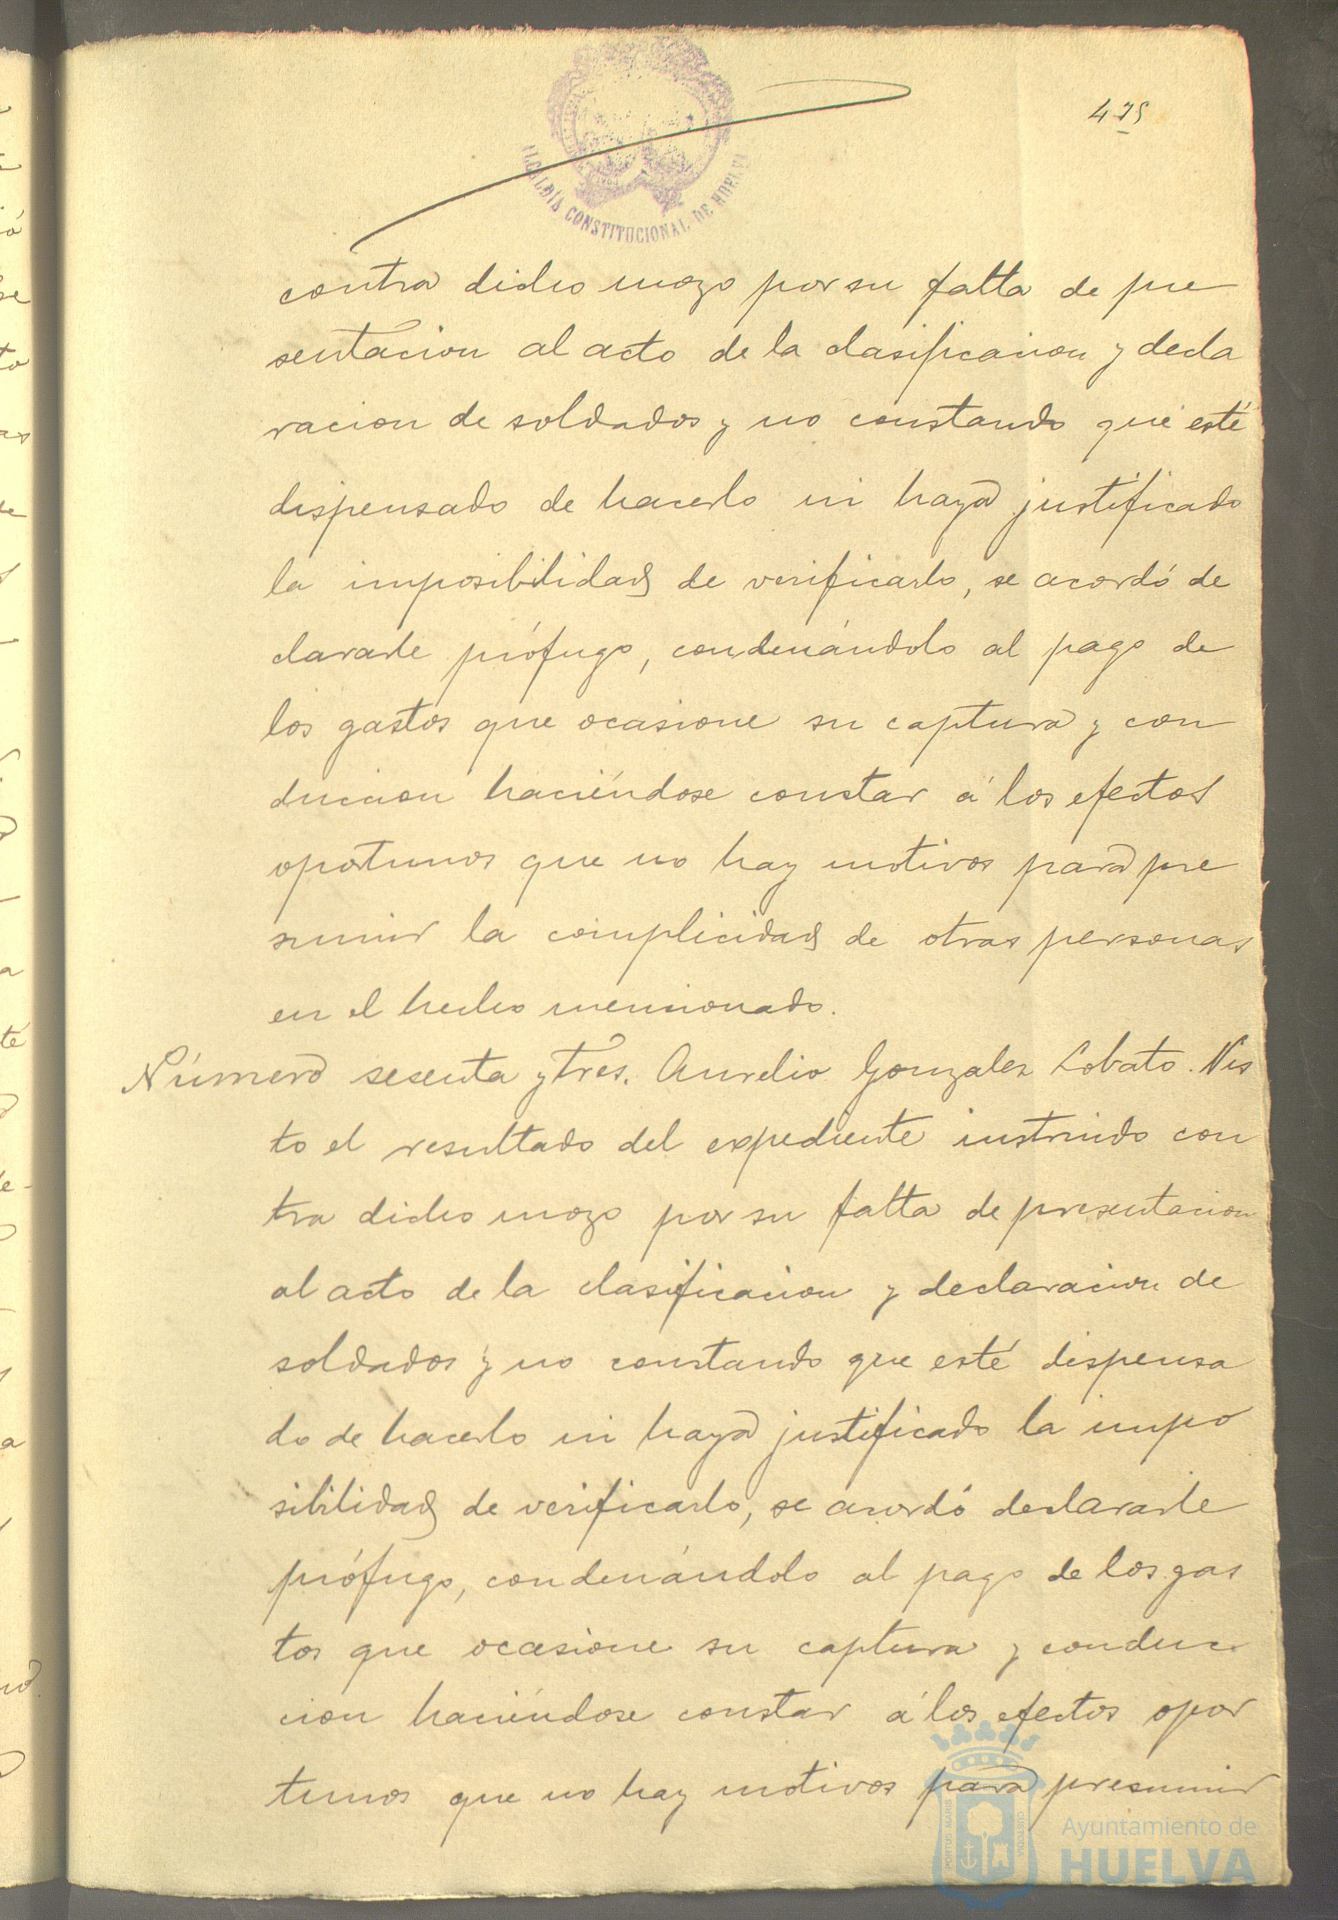 475
ALCALDÍA CONSTITUCIONAL DE HUELVA
contra dicho mozo por su falta de pre
sentacion al acto de la clasificacion y decla
racion de soldados y no constando que esté
dispensado de hacerlo ni haya justificado
la imposibilidad de verificarlo, se acordó de
clararle prófugo, condenándolo al pago de
los gastos que ocasione su captura y con
duccion haciéndose constar á los efectos
oportunos que no hay motivos para pre
sumir la complicidad de otras personas
en el hecho mencionado.
Número sesenta y tres. Aurelio Gonzalez Lobato. Vis
to el resultado del expediente instruido con
tra dicho mozo por su falta de presentacion
al acto de la clasificacion y declaracion de
soldados y no constando que esté dispensa
do de hacerlo ni haya justificado la impo
sibilidad de verificarlo, se acordó declararle
prófugo, condenándolo al pago de los gas
tos que ocasione su captura y conduc
cion haciéndose constar á los efectos opor
tunos que no hay motivos para presumir
PORTUS MARIS
CUSTODIA
Ayuntamiento de
HUELVA